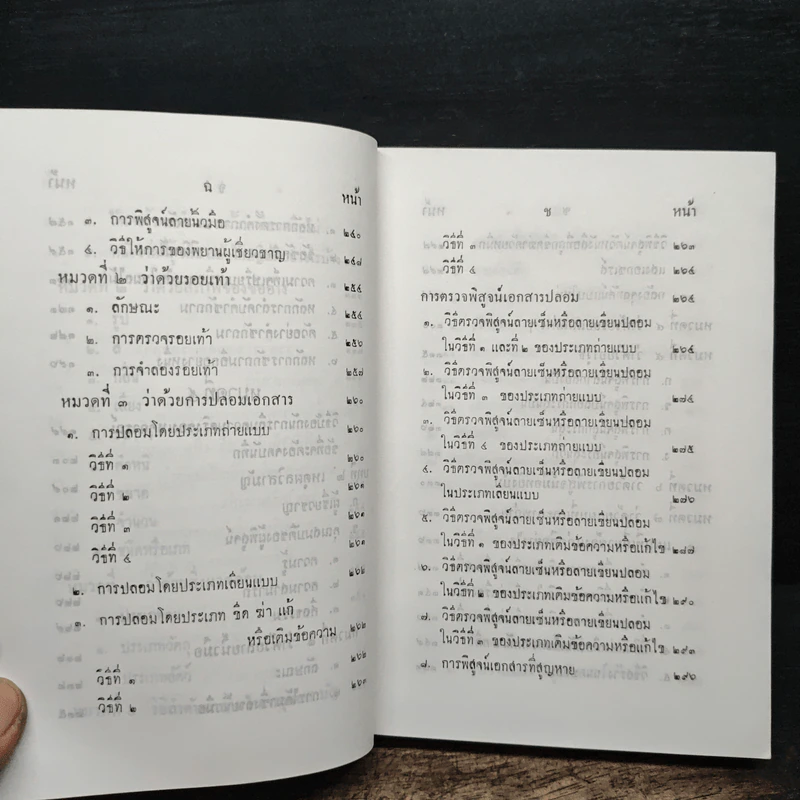 ฉ
หน้า
๓. การพิสูจน์ลายนิ้วมือ ๒๔๐
๔. วิธีให้การของพยานผู้เชี่ยวชาญ ๒๔๗
หมวดที่ ๒ ว่าด้วยรอยเท้า ๒๕๔
๑. ลักษณะ ๒๕๔
๒. การตรวจรอยเท้า ๒๕๖
๓. การจำลองรอยเท้า ๒๕๗
หมวดที่ ๓ ว่าด้วยการปลอมเอกสาร ๒๖๐
๑. การปลอมโดยประเภทถ่ายแบบ ๒๖๐
วิธีที่ ๑ ๒๖๐
วิธีที่ ๒ ๒๖๑
วิธีที่ ๓ ๒๖๑
วิธีที่ ๔ ๒๖๑
๒. การปลอมโดยประเภทเลียนแบบ ๒๖๒
๓. การปลอมโดยประเภท ขีด ฆ่า แก้
หรือเติมข้อความ ๒๖๒
วิธีที่ ๑ ๒๖๒
วิธีที่ ๒ ๒๖๓
ช
หน้า
วิธีที่ ๓ ๒๖๓
วิธีที่ ๔ ๒๖๔
การตรวจพิสูจน์เอกสารปลอม ๒๖๔
๑. วิธีตรวจพิสูจน์ลายเซ็นหรือลายเขียนปลอม
ในวิธีที่ ๑ และที่ ๒ ของประเภทถ่ายแบบ ๒๖๔
๒. วิธีตรวจพิสูจน์ลายเซ็นหรือลายเขียนปลอม
ในวิธีที่ ๓ ของประเภทถ่ายแบบ ๒๗๔
๓. วิธีตรวจพิสูจน์ลายเซ็นหรือลายเขียนปลอม
ในวิธีที่ ๔ ของประเภทถ่ายแบบ ๒๗๕
๔. วิธีตรวจพิสูจน์ลายเซ็นหรือลายเขียนปลอม
ในประเภทเลียนแบบ ๒๗๖
๕. วิธีตรวจพิสูจน์ลายเซ็นหรือลายเขียนปลอม
ในวิธีที่ ๑ ของประเภทเติมข้อความหรือแก้ไข ๒๘๗
๖. วิธีตรวจพิสูจน์ลายเซ็นหรือลายเขียนปลอม
ในวิธีที่ ๒ ของประเภทเติมข้อความหรือแก้ไข ๒๙๐
๗. วิธีตรวจพิสูจน์ลายเซ็นหรือลายเขียนปลอม
ในวิธีที่ ๓ ของประเภทเติมข้อความหรือแก้ไข ๒๙๓
๘. การพิสูจน์เอกสารที่สูญหาย ๒๙๖